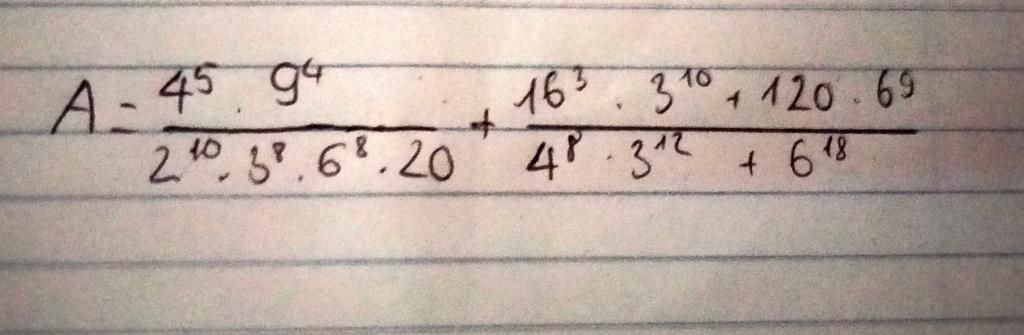 A = \frac{4^5 . 9^4}{2^{10} . 3^8 . 6^8 . 20} + \frac{16^3 . 3^{10} + 120 . 6^9}{4^8 . 3^{12} + 6^{18}}